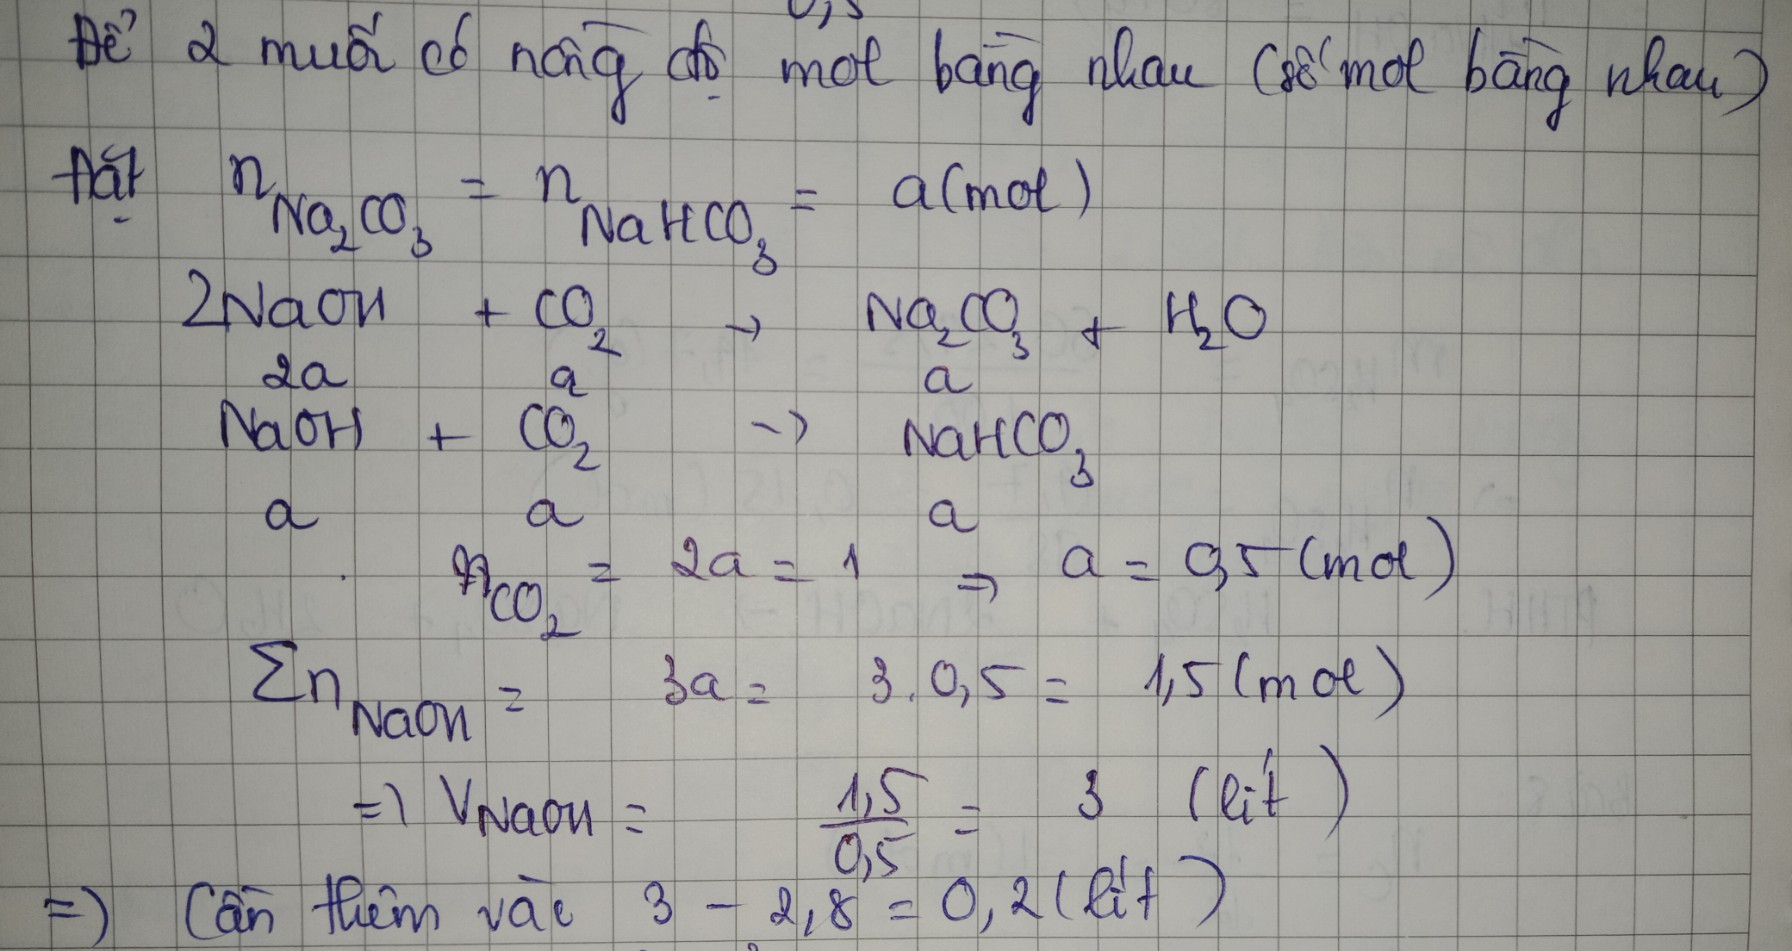 0,5
Để 2 muối có nồng độ mol bằng nhau (số mol bằng nhau)
Đặt n Na₂CO₃ = n NaHCO₃ = a(mol)
2NaOH + CO₂ → Na₂CO₃ + H₂O
2a a a
NaOH + CO₂ → NaHCO₃
a a a
n CO₂ = 2a = 1 => a = 0,5 (mol)
Σn NaOH = 3a = 3.0,5 = 1,5 (mol)
=> V NaOH = 1,5/0,5 = 3 (lít)
=> Cần thêm vào 3 - 2,8 = 0,2 (lít)